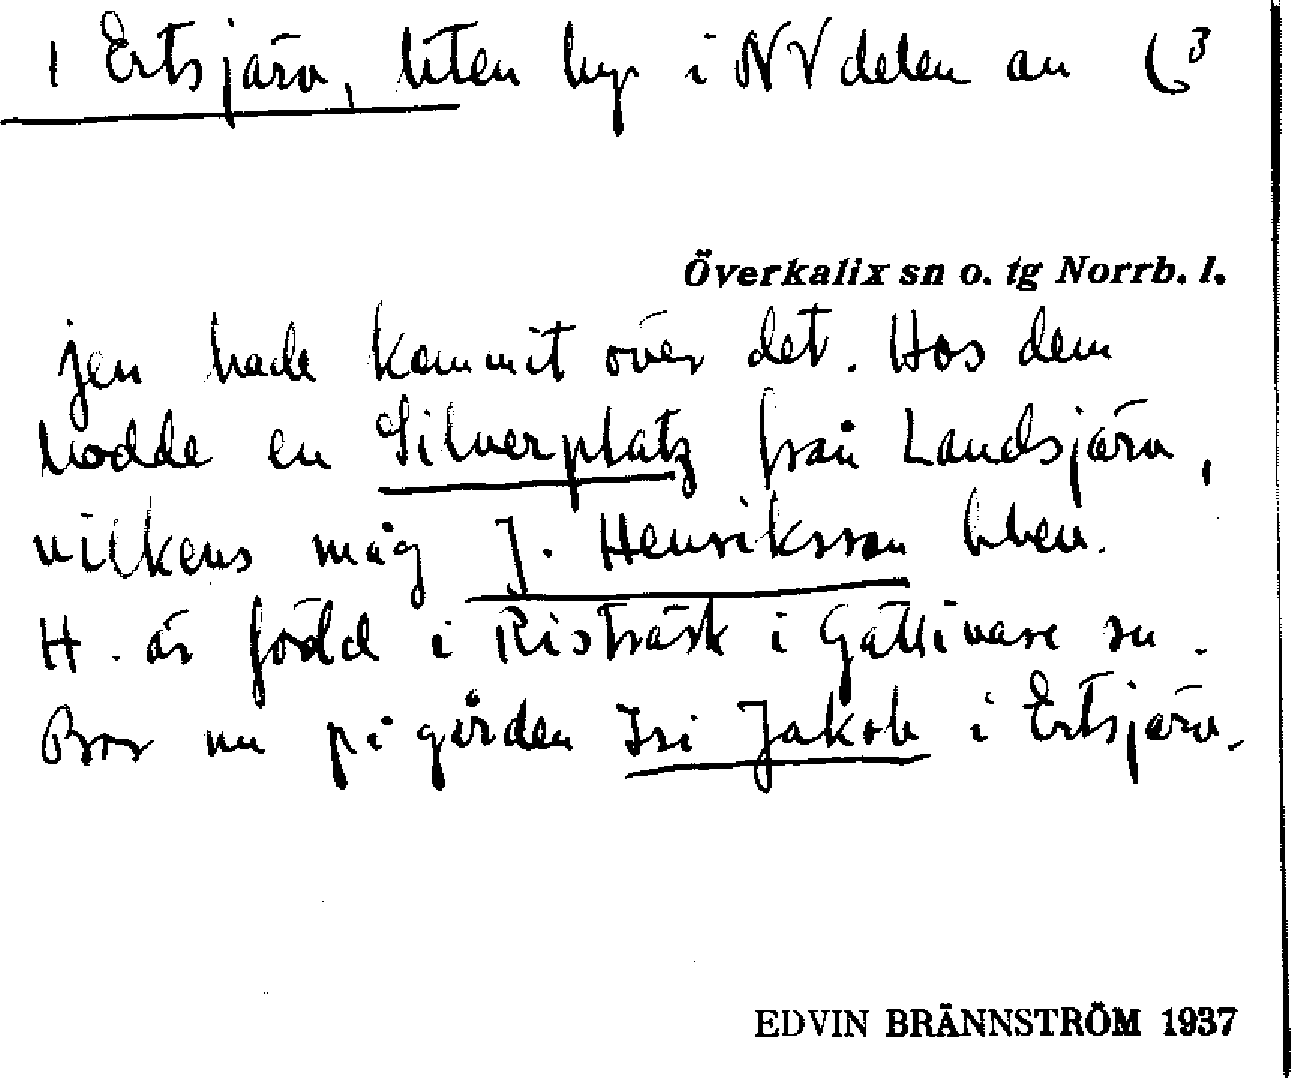 1 Ertsjärv, liten by i NV delen av (3
Överkalix sn o. tg Norrb. l.
jen hade kommit över det. Hos dem
bodde en Silverplatz från Landsjärv,
vilkens måg J. Henriksson blev.
H. är född i Risträsk i Gällivare sn.
Bor nu på gården Isi Jakob i Ertsjärv.
EDVIN BRÄNNSTRÖM 1937